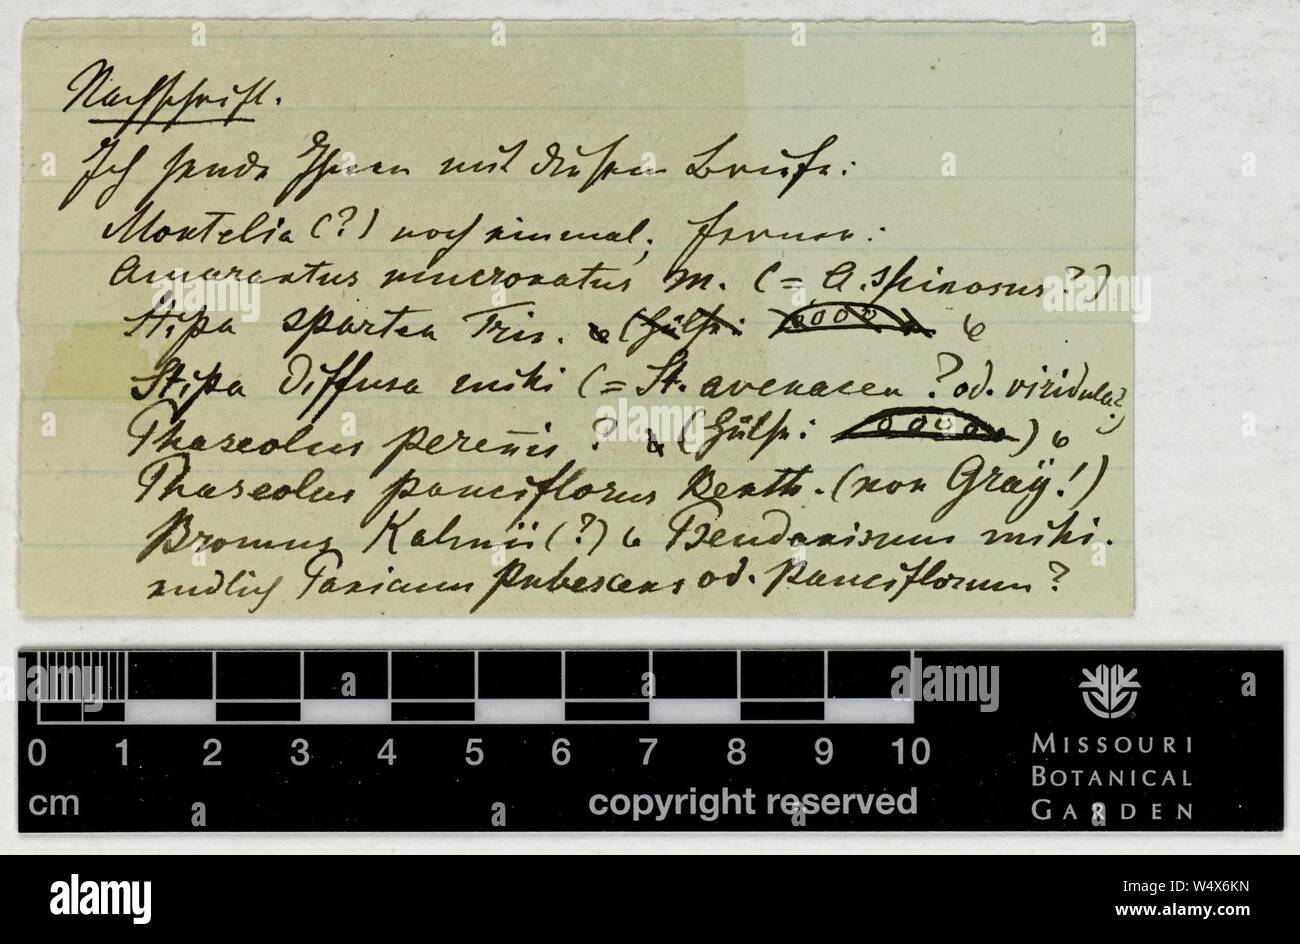 Nachschrift.
Ich sende Ihnen mit diesem Briefe:
Montelia (?) noch einmal, ferner:
Amarantus mucronatus m. (= A. spinosus?)
Stipa spartea Trin. (Hülse:
Stipa diffusa mihi (= St. avenacea? od. viridula?)
Phaseolus perennis? (Hülse: )
Phaseolus pauciflorus Benth. (non Gray!)
Bromus Kalmii (?) Pseudonismus mihi.
endlich Panicum pubescens od. pauciflorum?
0 1 2 3 4 5 6 7 8 9 10
cm
copyright reserved
MISSOURI
BOTANICAL
GARDEN
alamy
Image ID: W4X6KN
www.alamy.com